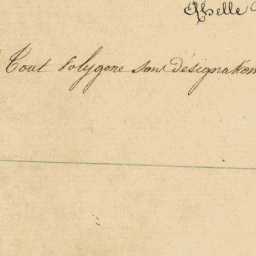 Echelle
Tout Polygone sans désignation